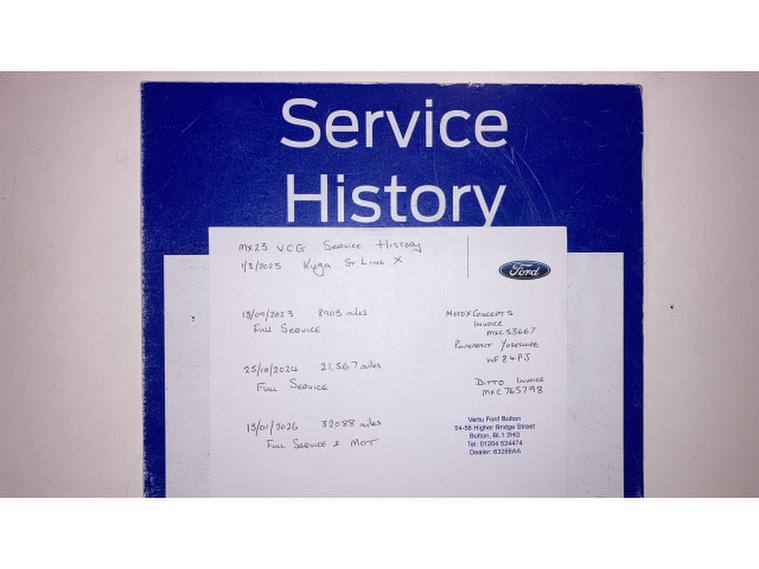 Service
History
MX23 VCG Service History
1/3/2023 Kuga ST Line X
Ford
18/09/2023 8903 miles
Full Service
MotoXConcepts
Invoice
MXC53667
Pontefract Yorkshire
WF8 4PJ
25/10/2024 21,567 miles
Full Service
Ditto Invoice
MXC765798
13/01/2026 32088 miles
Full Service & MOT
Vertu Ford Bolton
54-56 Higher Bridge Street
Bolton, BL1 2HG
Tel: 01204 524474
Dealer: 63266AA